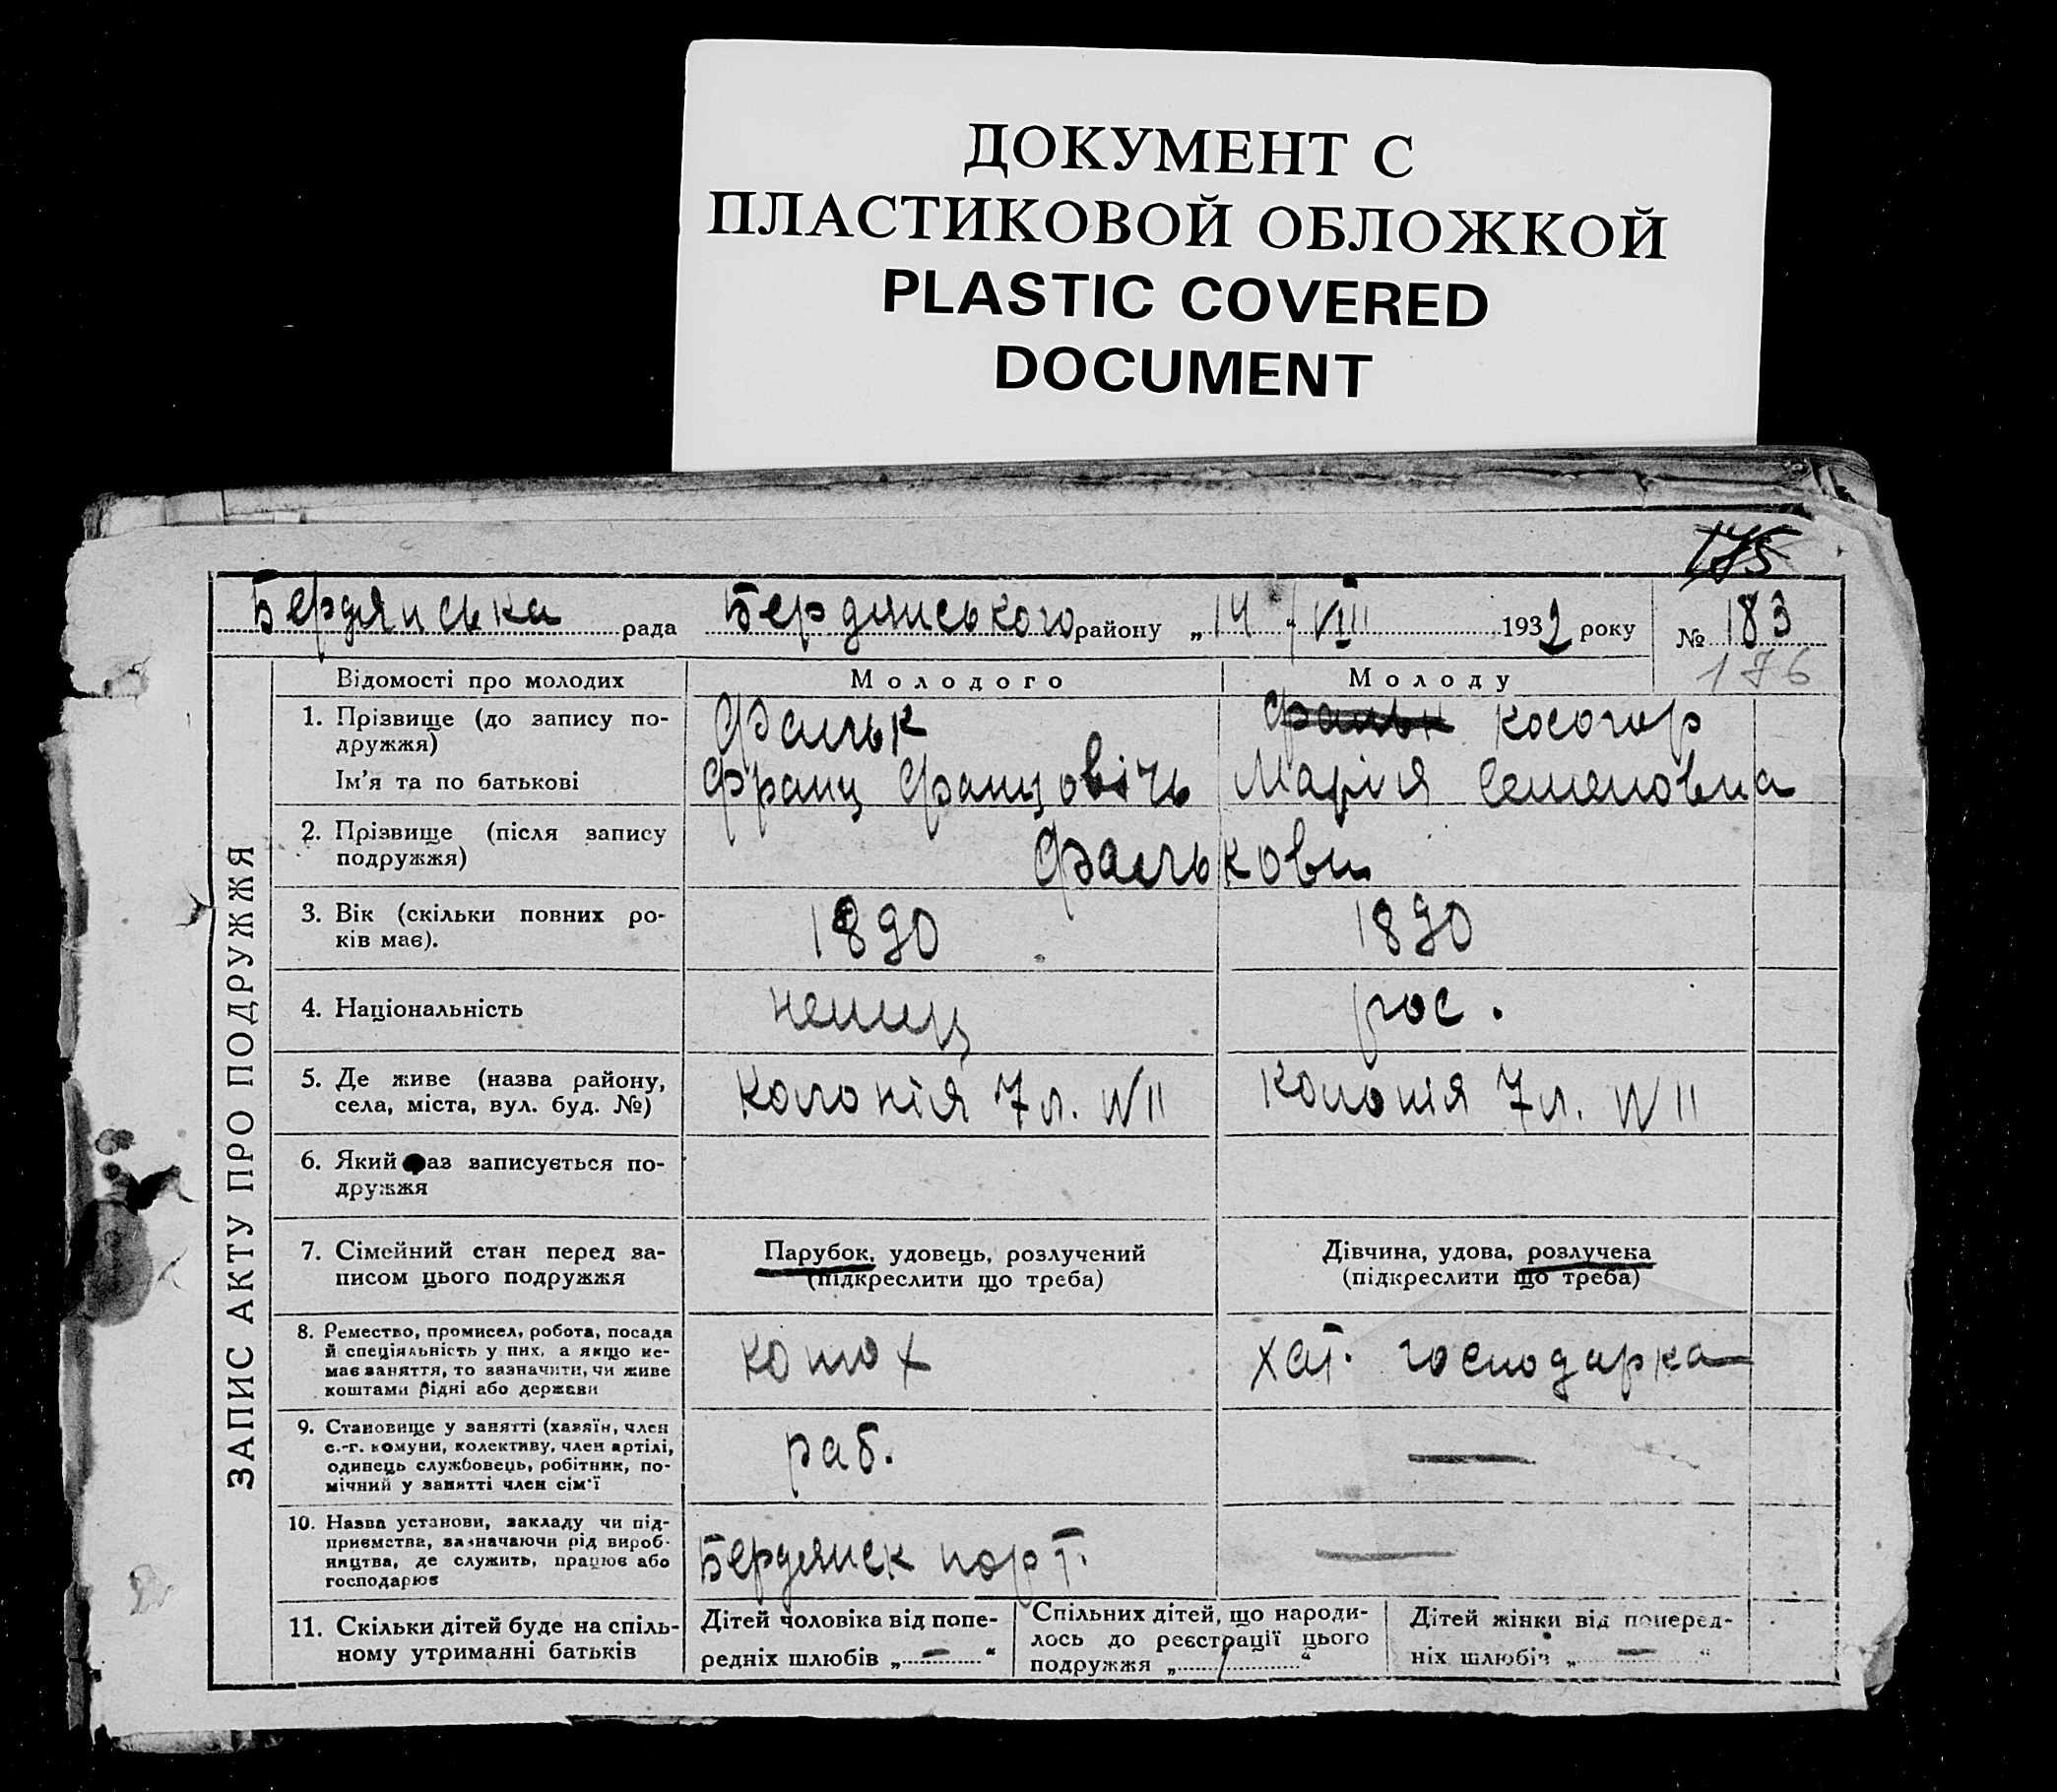 ДОКУМЕНТ С
ПЛАСТИКОВОЙ ОБЛОЖКОЙ
PLASTIC COVERED
DOCUMENT
175
Бердянська рада Бердянського району „14“ VIII 1932 року № 183
176
ЗАПИС АКТУ ПРО ПОДРУЖЖЯ
Відомості про молодих Молодого Молоду
1. Прізвище (до запису по-
дружжя) Фальк Фальк Косогор
Ім'я та по батькові Франц Францовічь Марія Семеновна
2. Прізвище (після запису
подружжя) Фалькови
3. Вік (скільки повних ро-
ків має). 1890 1890
4. Національність немиц рос.
5. Де живе (назва району,
села, міста, вул. буд. №) Колонія 7 л. N 11 Колонія 7 л. N 11
6. Який раз записується по-
дружжя
7. Сімейний стан перед за-
писом цього подружжя
Парубок, удовець, розлучений
(підкреслити що треба)
Дівчина, удова, розлучена
(підкреслити що треба)
8. Ремество, промисел, робота, посада
й спеціяльність у них, а якщо не-
має заняття, то зазначити, чи живе
коштами рідні або держави
хат. господарка
9. Становище у занятті (хазяїн, член
с.-г. комуни, колективу, член артілі,
одинець службовець, робітник, по-
мічний у занятті член сім'ї
раб. —
10. Назва установи, закладу чи під-
приємства, зазначаючи рід вироб-
ництва, де служить, працює або
господарює
Бердянск порт. —
11. Скільки дітей буде на спіль-
ному утриманні батьків
Дітей чоловіка від попе-
редніх шлюбів „—“
Спільних дітей, що народи-
лось до реєстрації цього
подружжя „/“
Дітей жінки від поперед-
ніх шлюбів „—“